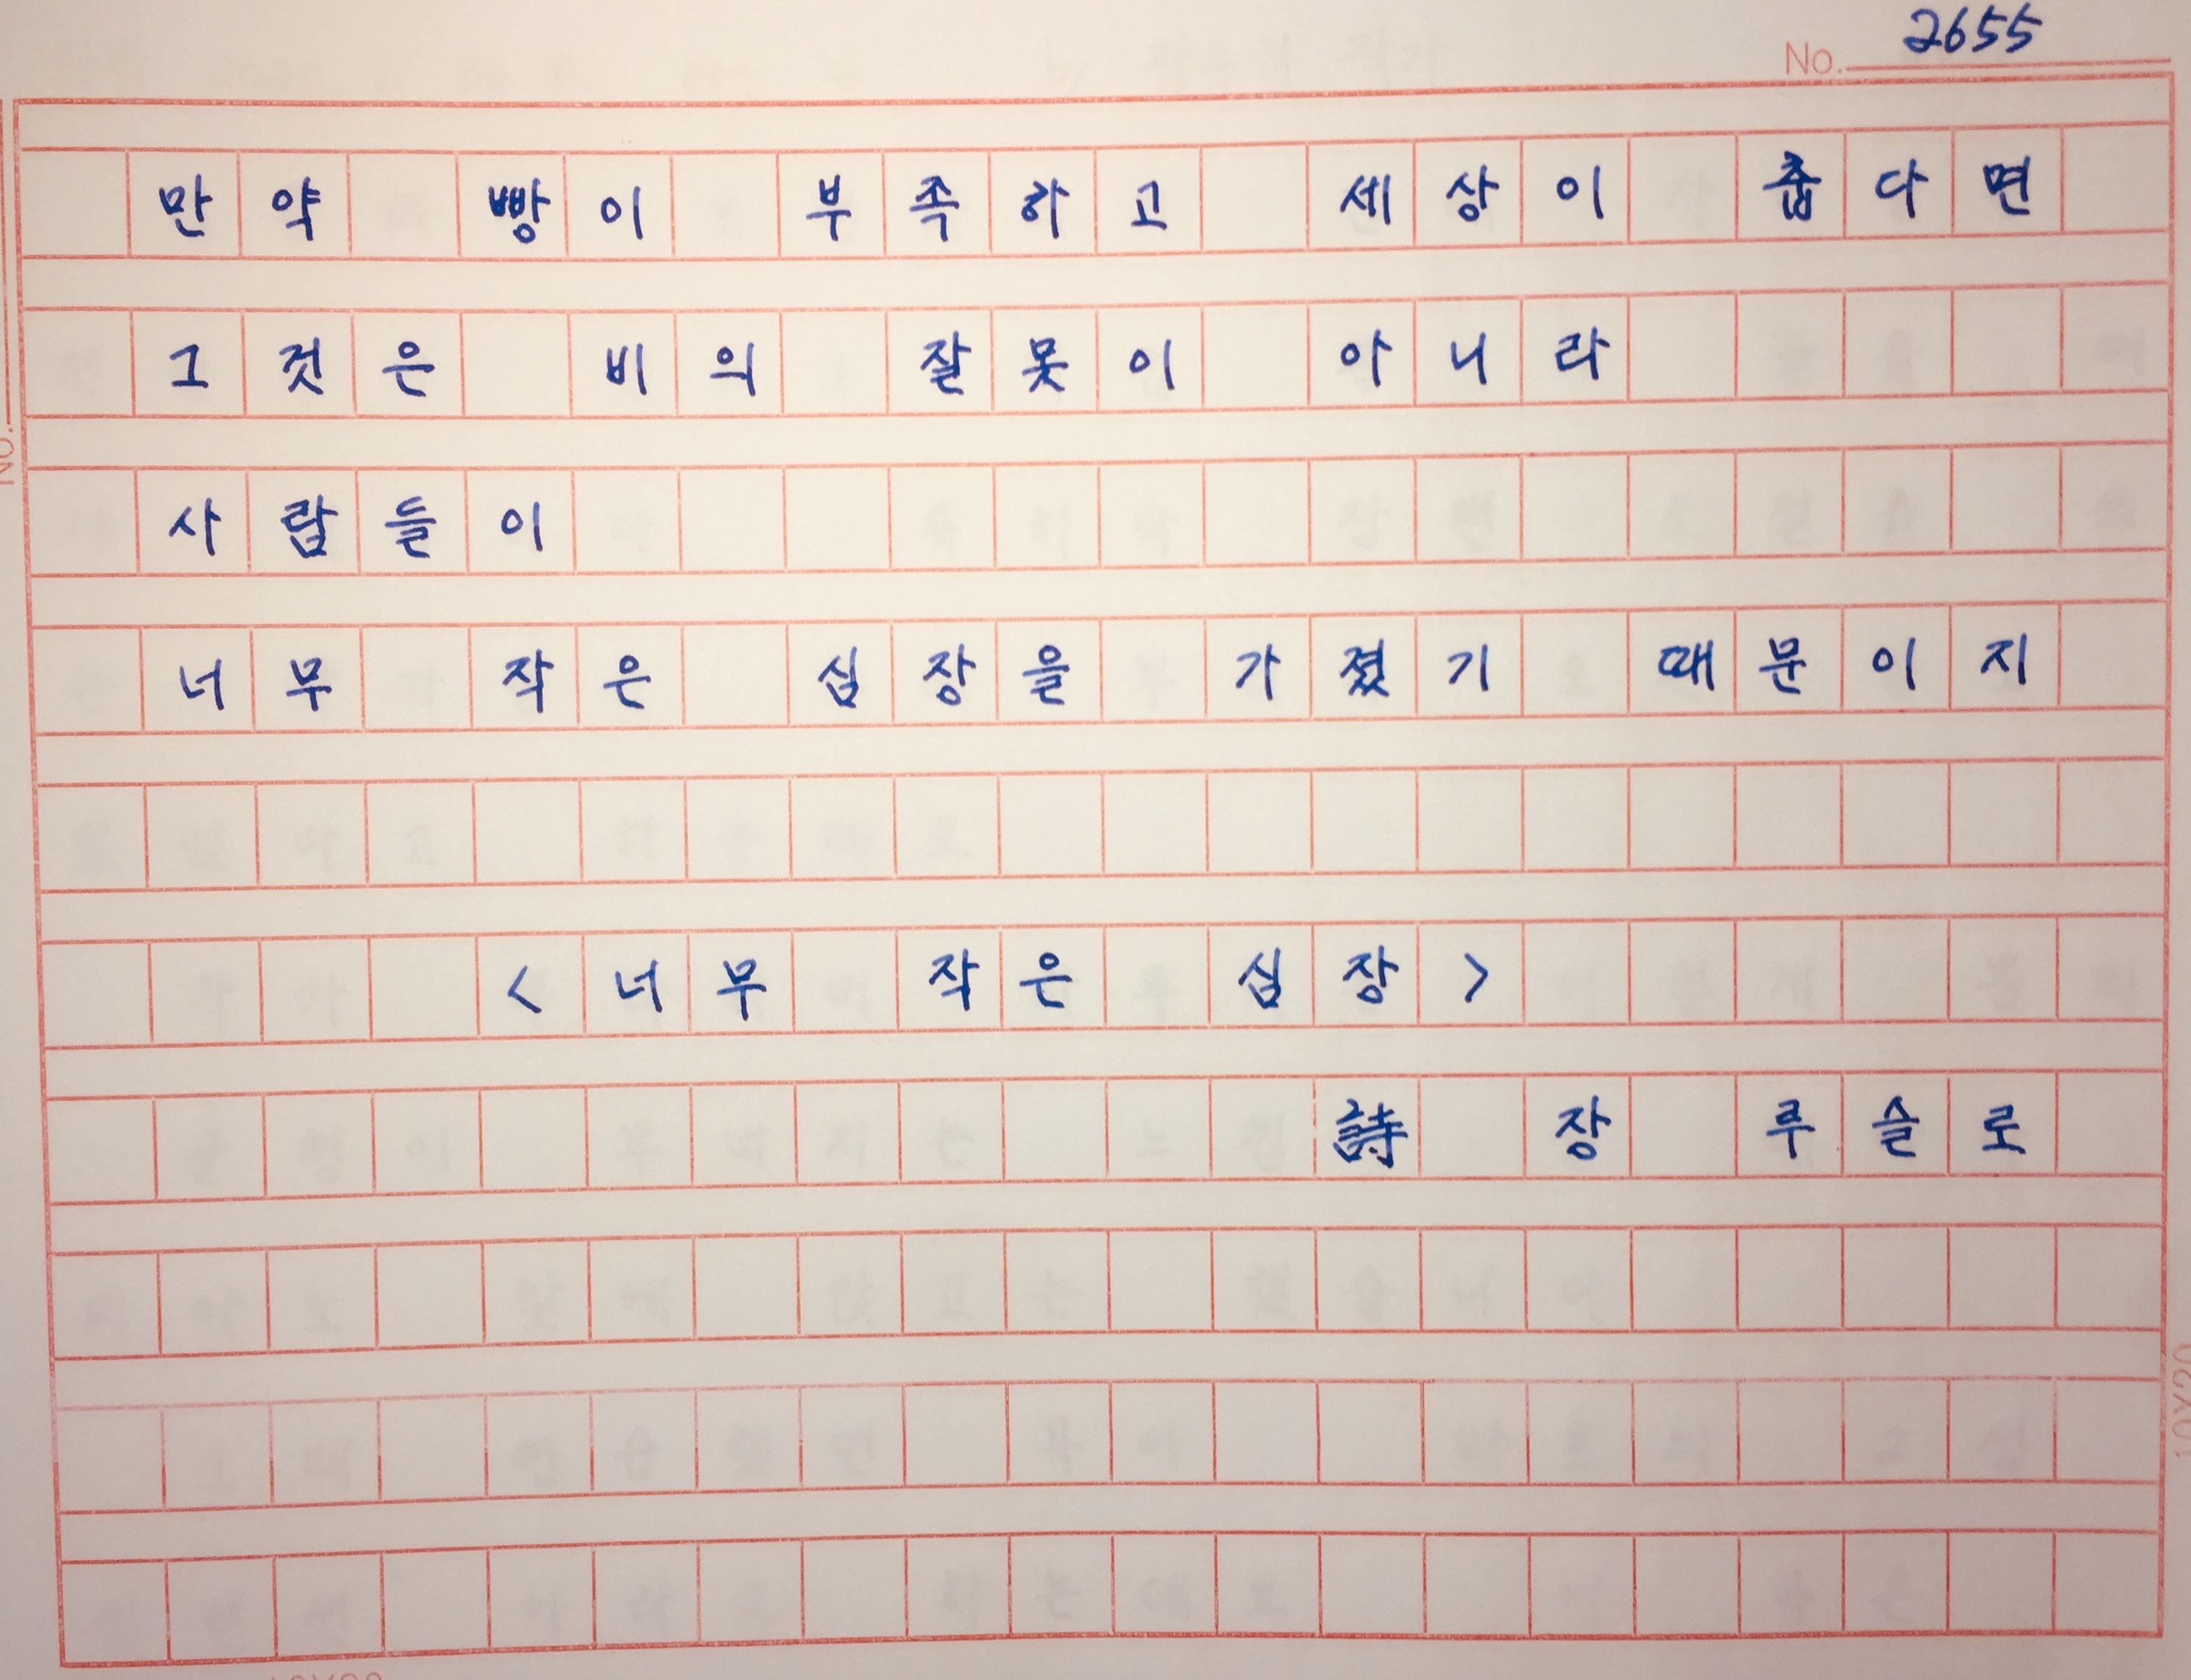 No. 2655
만약 빵이 부족하고 세상이 춥다면
그것은 비의 잘못이 아니라
사람들이
너무 작은 심장을 가졌기 때문이지
<너무 작은 심장>
詩 장 루슬로